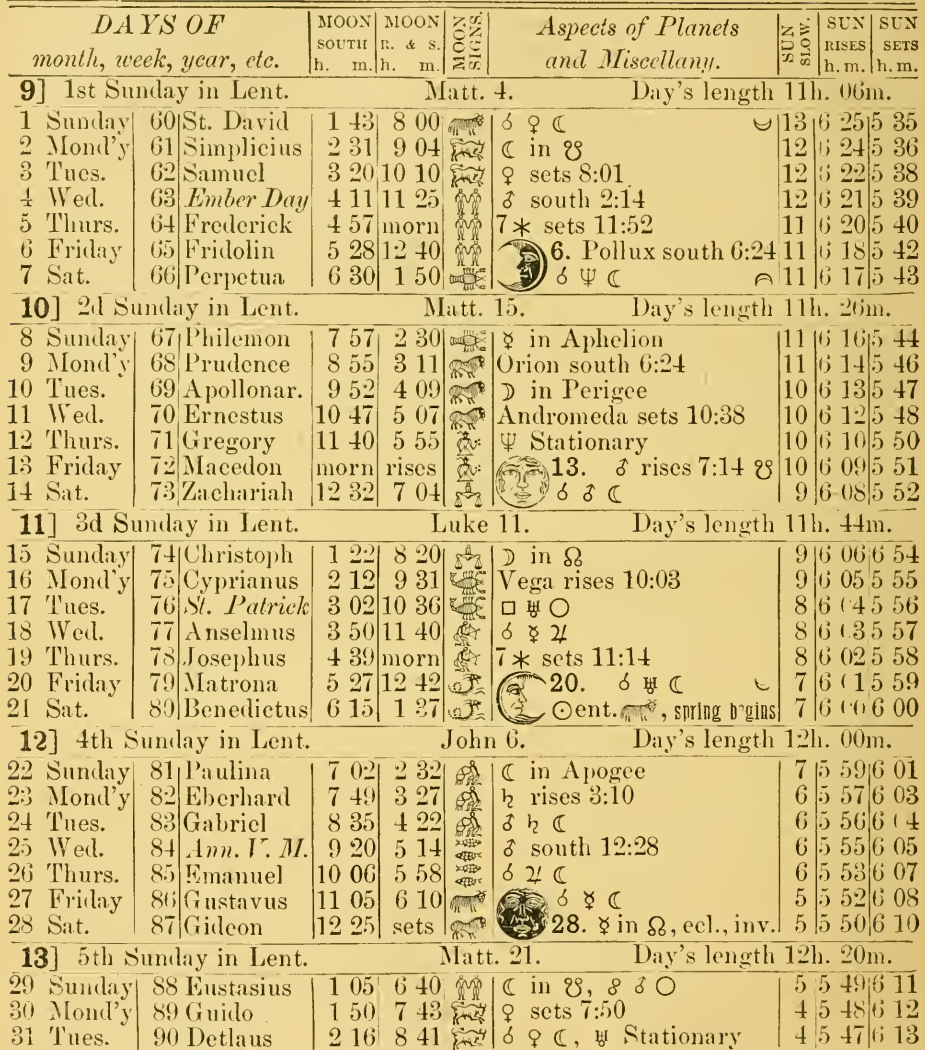 DAYS OF month, week, year, etc. MOON SOUTH h. m. MOON R. & S. h. m. MOON SIGNS. Aspects of Planets and Miscellany. SUN SLOW. SUN RISES h. m. SUN SETS h. m.
9] 1st Sunday in Lent. Matt. 4. Day's length 11h. 06m.
1 Sunday 60 St. David 1 43 8 00 ☌ ♀ ☾ 13 6 25 5 35
2 Mond'y 61 Simplicius 2 31 9 04 ☾ in ☋ 12 6 24 5 36
3 Tues. 62 Samuel 3 20 10 10 ♀ sets 8:01 12 6 22 5 38
4 Wed. 63 Ember Day 4 11 11 25 ♂ south 2:14 12 6 21 5 39
5 Thurs. 64 Frederick 4 57 morn 7✶ sets 11:52 11 6 20 5 40
6 Friday 65 Fridolin 5 28 12 40 6. Pollux south 6:24 11 6 18 5 42
7 Sat. 66 Perpetua 6 30 1 50 ☌ ♆ ☾ 11 6 17 5 43
10] 2d Sunday in Lent. Matt. 15. Day's length 11h. 26m.
8 Sunday 67 Philemon 7 57 2 30 ☿ in Aphelion 11 6 16 5 44
9 Mond'y 68 Prudence 8 55 3 11 Orion south 6:24 11 6 14 5 46
10 Tues. 69 Apollonar. 9 52 4 09 ☽ in Perigee 10 6 13 5 47
11 Wed. 70 Ernestus 10 47 5 07 Andromeda sets 10:38 10 6 12 5 48
12 Thurs. 71 Gregory 11 40 5 55 ♆ Stationary 10 6 10 5 50
13 Friday 72 Macedon morn rises 13. ♂ rises 7:14 ☋ 10 6 09 5 51
14 Sat. 73 Zachariah 12 32 7 04 ☌ ♂ ☾ 9 6 08 5 52
11] 3d Sunday in Lent. Luke 11. Day's length 11h. 44m.
15 Sunday 74 Christoph 1 22 8 20 ☽ in ☊ 9 6 06 6 54
16 Mond'y 75 Cyprianus 2 12 9 31 Vega rises 10:03 9 6 05 5 55
17 Tues. 76 St. Patrick 3 02 10 36 □ ♅ ○ 8 6 04 5 56
18 Wed. 77 Anselmus 3 50 11 40 ☌ ☿ ♃ 8 6 03 5 57
19 Thurs. 78 Josephus 4 39 morn 7✶ sets 11:14 8 6 02 5 58
20 Friday 79 Matrona 5 27 12 42 20. ☌ ♅ ☾ 7 6 01 5 59
21 Sat. 80 Benedictus 6 15 1 37 ☉ ent. , spring b'gins 7 6 00 6 00
12] 4th Sunday in Lent. John 6. Day's length 12h. 00m.
22 Sunday 81 Paulina 7 02 2 32 ☾ in Apogee 7 5 59 6 01
23 Mond'y 82 Eberhard 7 49 3 27 ♄ rises 3:10 6 5 57 6 03
24 Tues. 83 Gabriel 8 35 4 22 ☌ ♄ ☾ 6 5 56 6 04
25 Wed. 84 Ann. V. M. 9 20 5 14 ♂ south 12:28 6 5 55 6 05
26 Thurs. 85 Emanuel 10 06 5 58 ☌ ♃ ☾ 6 5 53 6 07
27 Friday 86 Gustavus 11 05 6 10 ☌ ☿ ☾ 5 5 52 6 08
28 Sat. 87 Gideon 12 25 sets 28. ☿ in ☊, ecl., inv. 5 5 50 6 10
13] 5th Sunday in Lent. Matt. 21. Day's length 12h. 20m.
29 Sunday 88 Eustasius 1 05 6 40 ☾ in ☋, ☍ ♂ ○ 5 5 49 6 11
30 Mond'y 89 Guido 1 50 7 43 ♀ sets 7:50 4 5 48 6 12
31 Tues. 90 Detlaus 2 16 8 41 ☌ ♀ ☾, ♅ Stationary 4 5 47 6 13